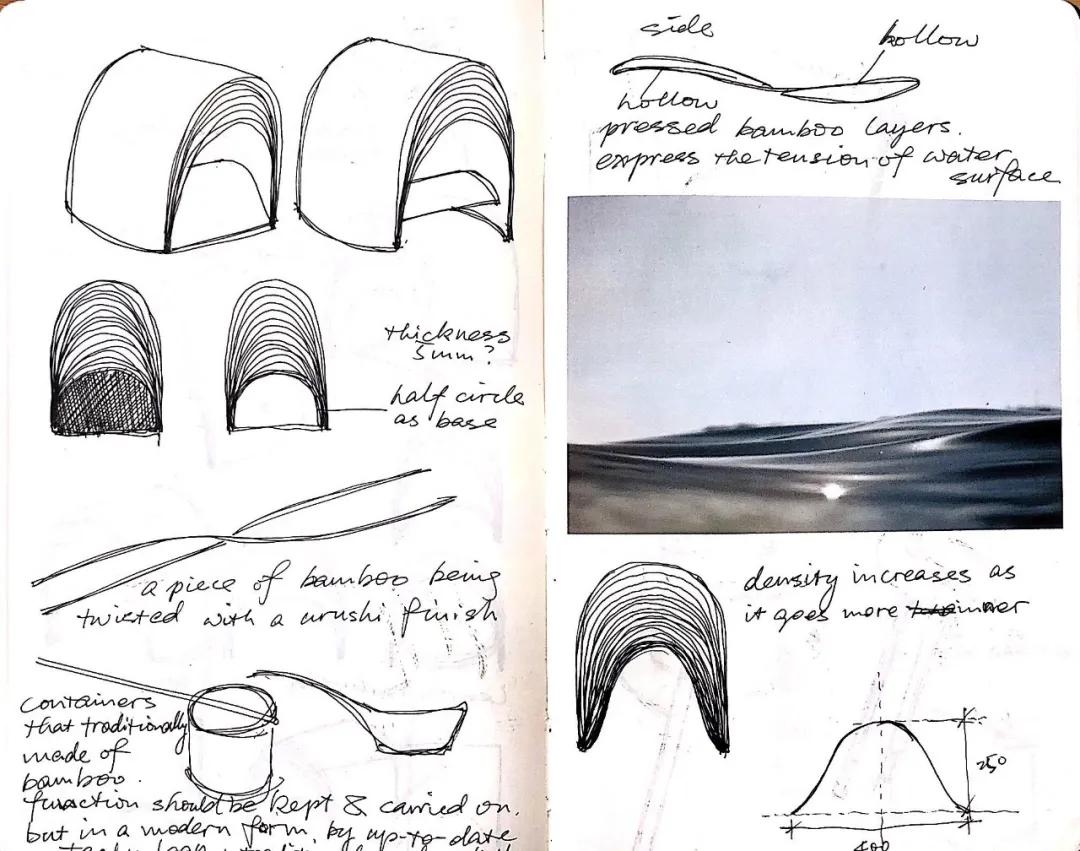 thickness
5mm?
half circle
as base
a piece of bamboo being
twisted with a urushi finish
containers
that traditionally
made of
bamboo.
function should be kept & carried on,
but in a modern form, by up-to-date
side
hollow
hollow
pressed bamboo layers.
express the tension of water
surface
density increases as
it goes more inner
250
400